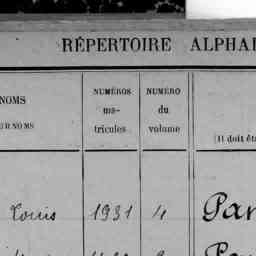 RÉPERTOIRE ALPHA
NOMS
NUMÉROS
ma-
tricules
NUMÉRO
du
volume
(Il doit êt
Louis 1931 4 Par